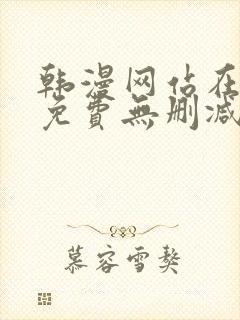 韩漫网站在
免費無删减
慕容雪獒